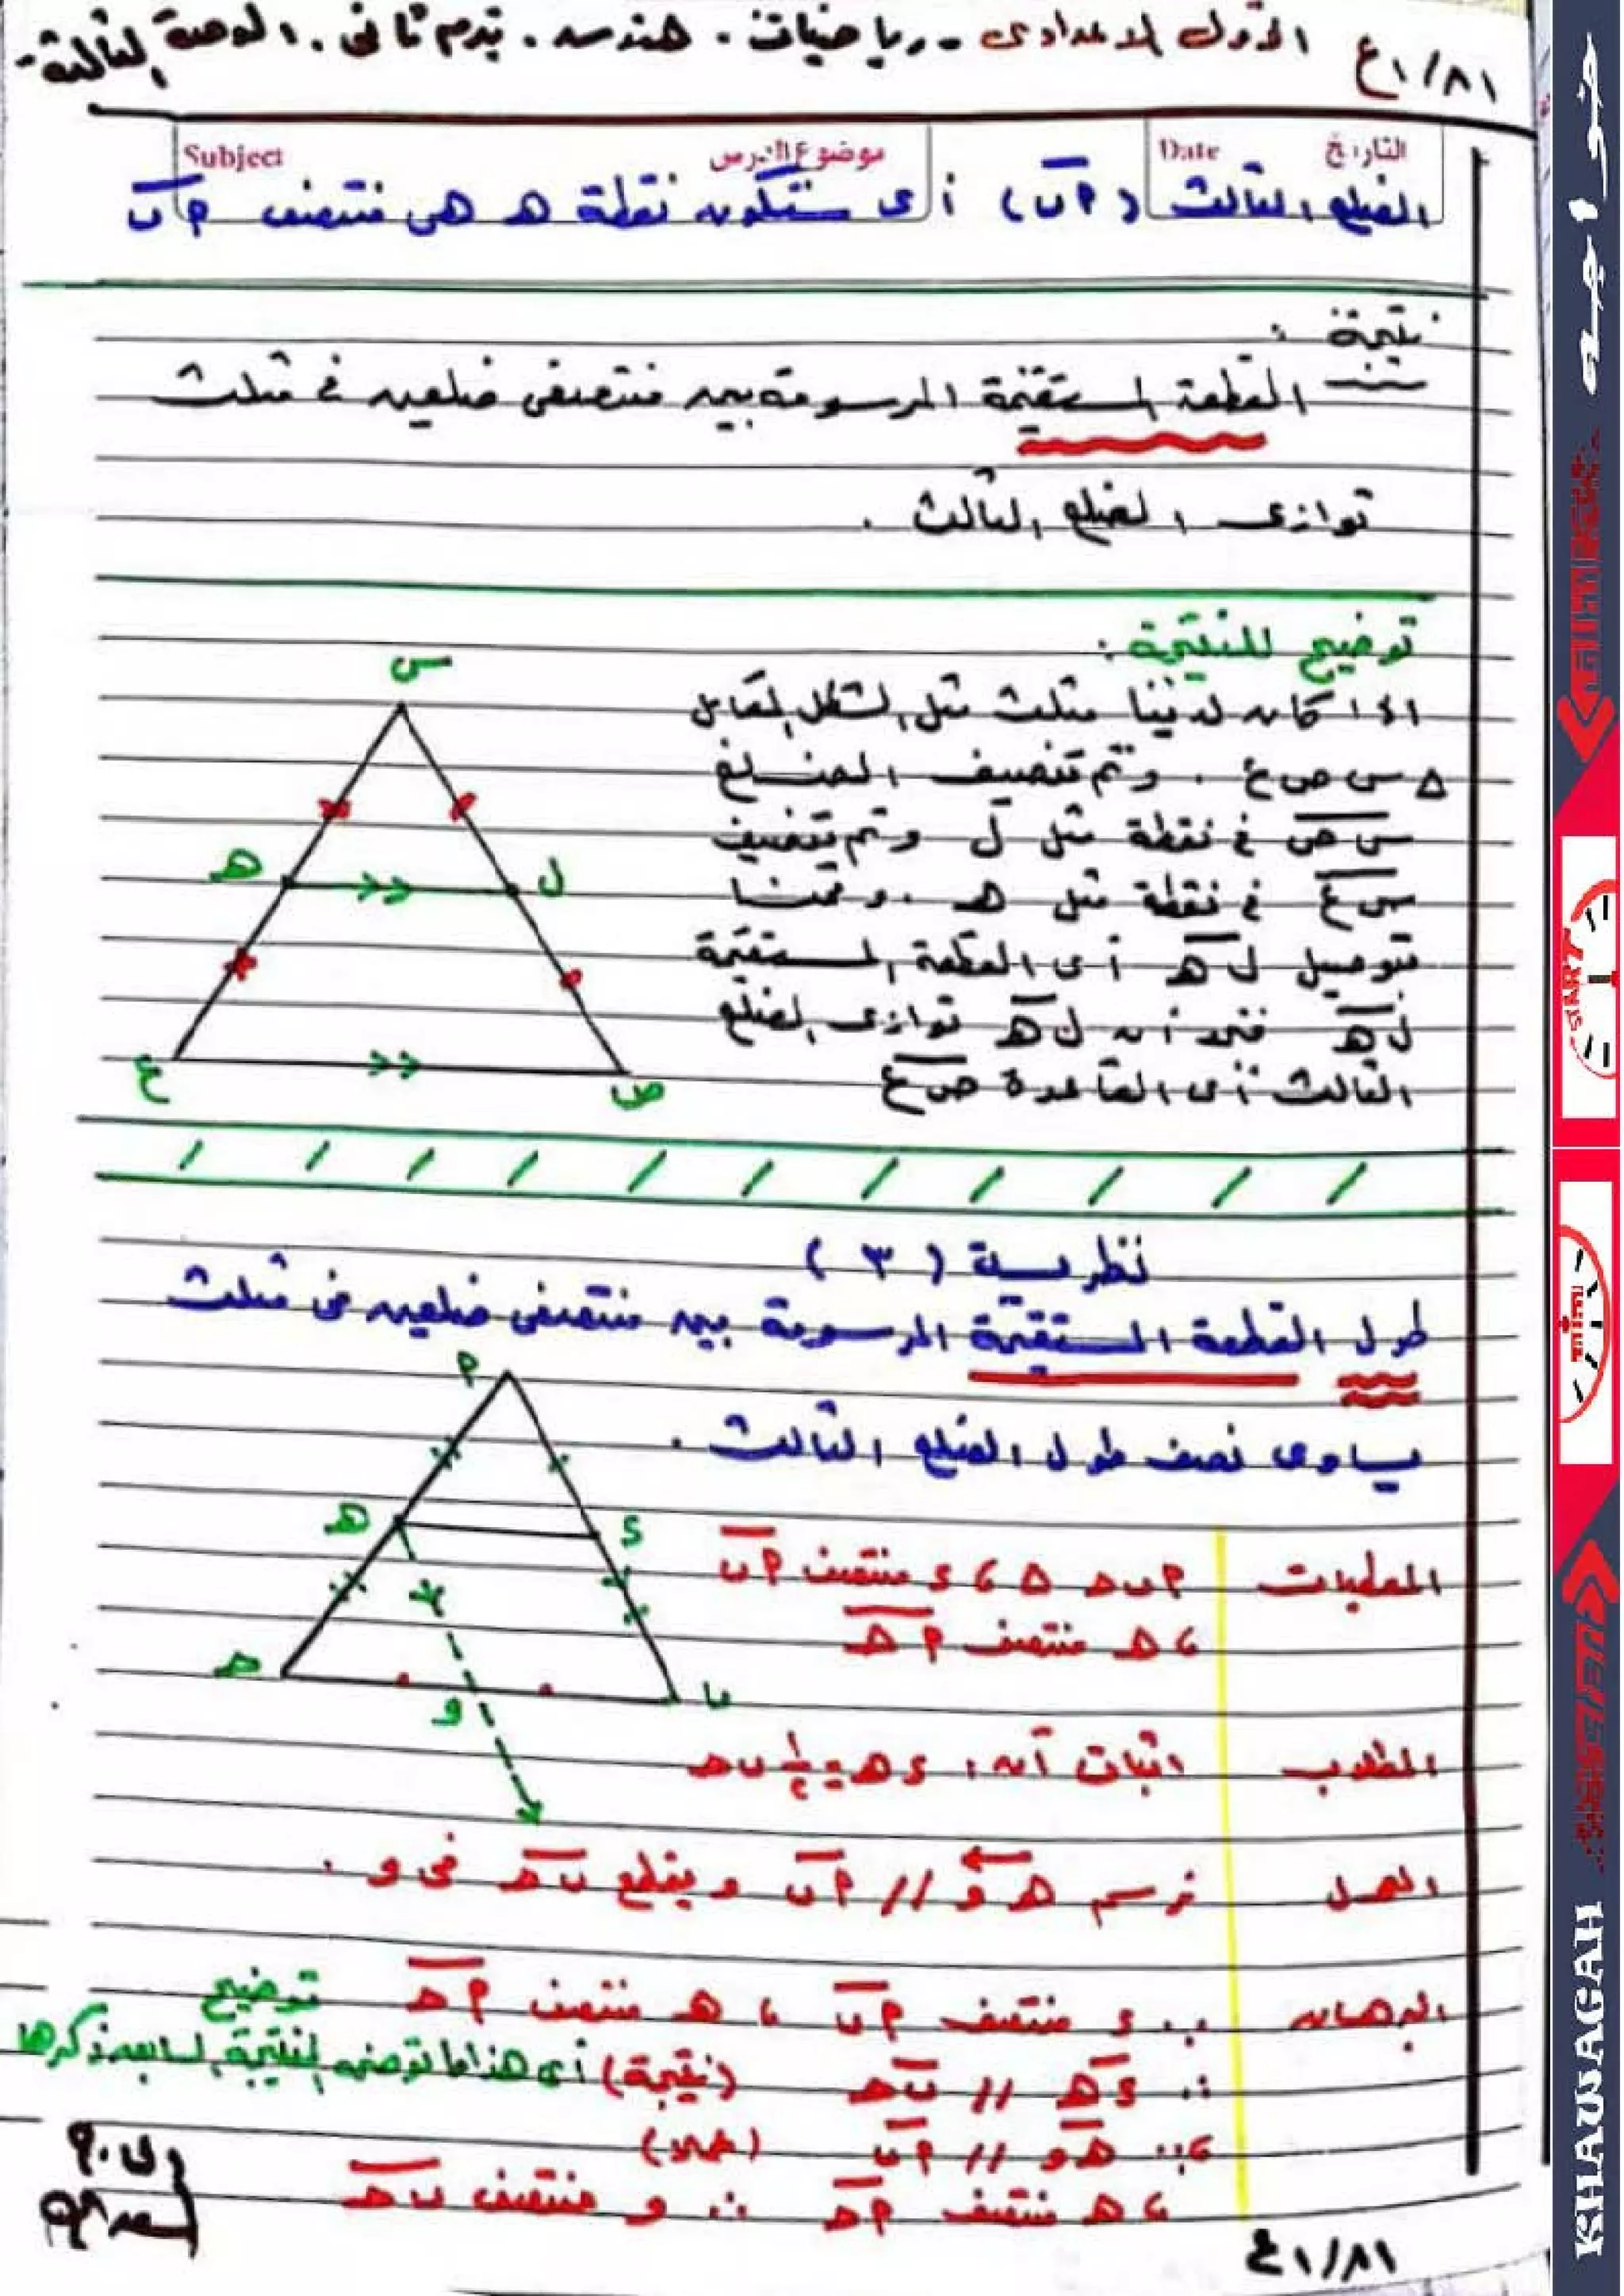 الأول الإعدادى - رياضيات . هندسه . ترم ثانى . الوحدة الثالثة -
Subject موضوع الدرس Date التاريخ
الضلع الثالث (م ب) أى ستكون نقطة هـ هى منتصف م ب
نتيجة :
القطعة المستقيمة المرسومة بين منتصفى ضلعين فى مثلث
توازى الضلع الثالث .
توضيح للنتيجة :
إذا كان لدينا مثلث مثل الشكل المقابل
Δ س ص ع . وتم تنصيف الضلع
س ص فى نقطة مثل ل وتم تنصيف
س ع فى نقطة مثل هـ . وقمنا
بتوصيل ل هـ أى القطعة المستقيمة
ل هـ فنجد أن ل هـ توازى الضلع
الثالث أى القاعدة ص ع
س
هـ ل
ع ص
نظرية (٣)
طول القطعة المستقيمة المرسومة بين منتصفى ضلعين فى مثلث
يساوى نصف طول الضلع الثالث .
م
هـ د
حـ و ب
المعطيات م ب حـ Δ ، د منتصف م ب
، هـ منتصف م حـ
المطلوب اثبات أن : د هـ = ١/٢ ب حـ
العمل نرسم هـ و // م ب ويقطع ب حـ فى و .
البرهان ∵ د منتصف م ب ، هـ منتصف م حـ توضيح
∴ د هـ // ب حـ (نتيجة) أى هذا ما توضحه النتيجة السابق ذكرها
، ∵ هـ و // م ب (عملا)
، هـ منتصف م حـ ∴ و منتصف ب حـ
خواجه
START
TIME
KHAWAGAH